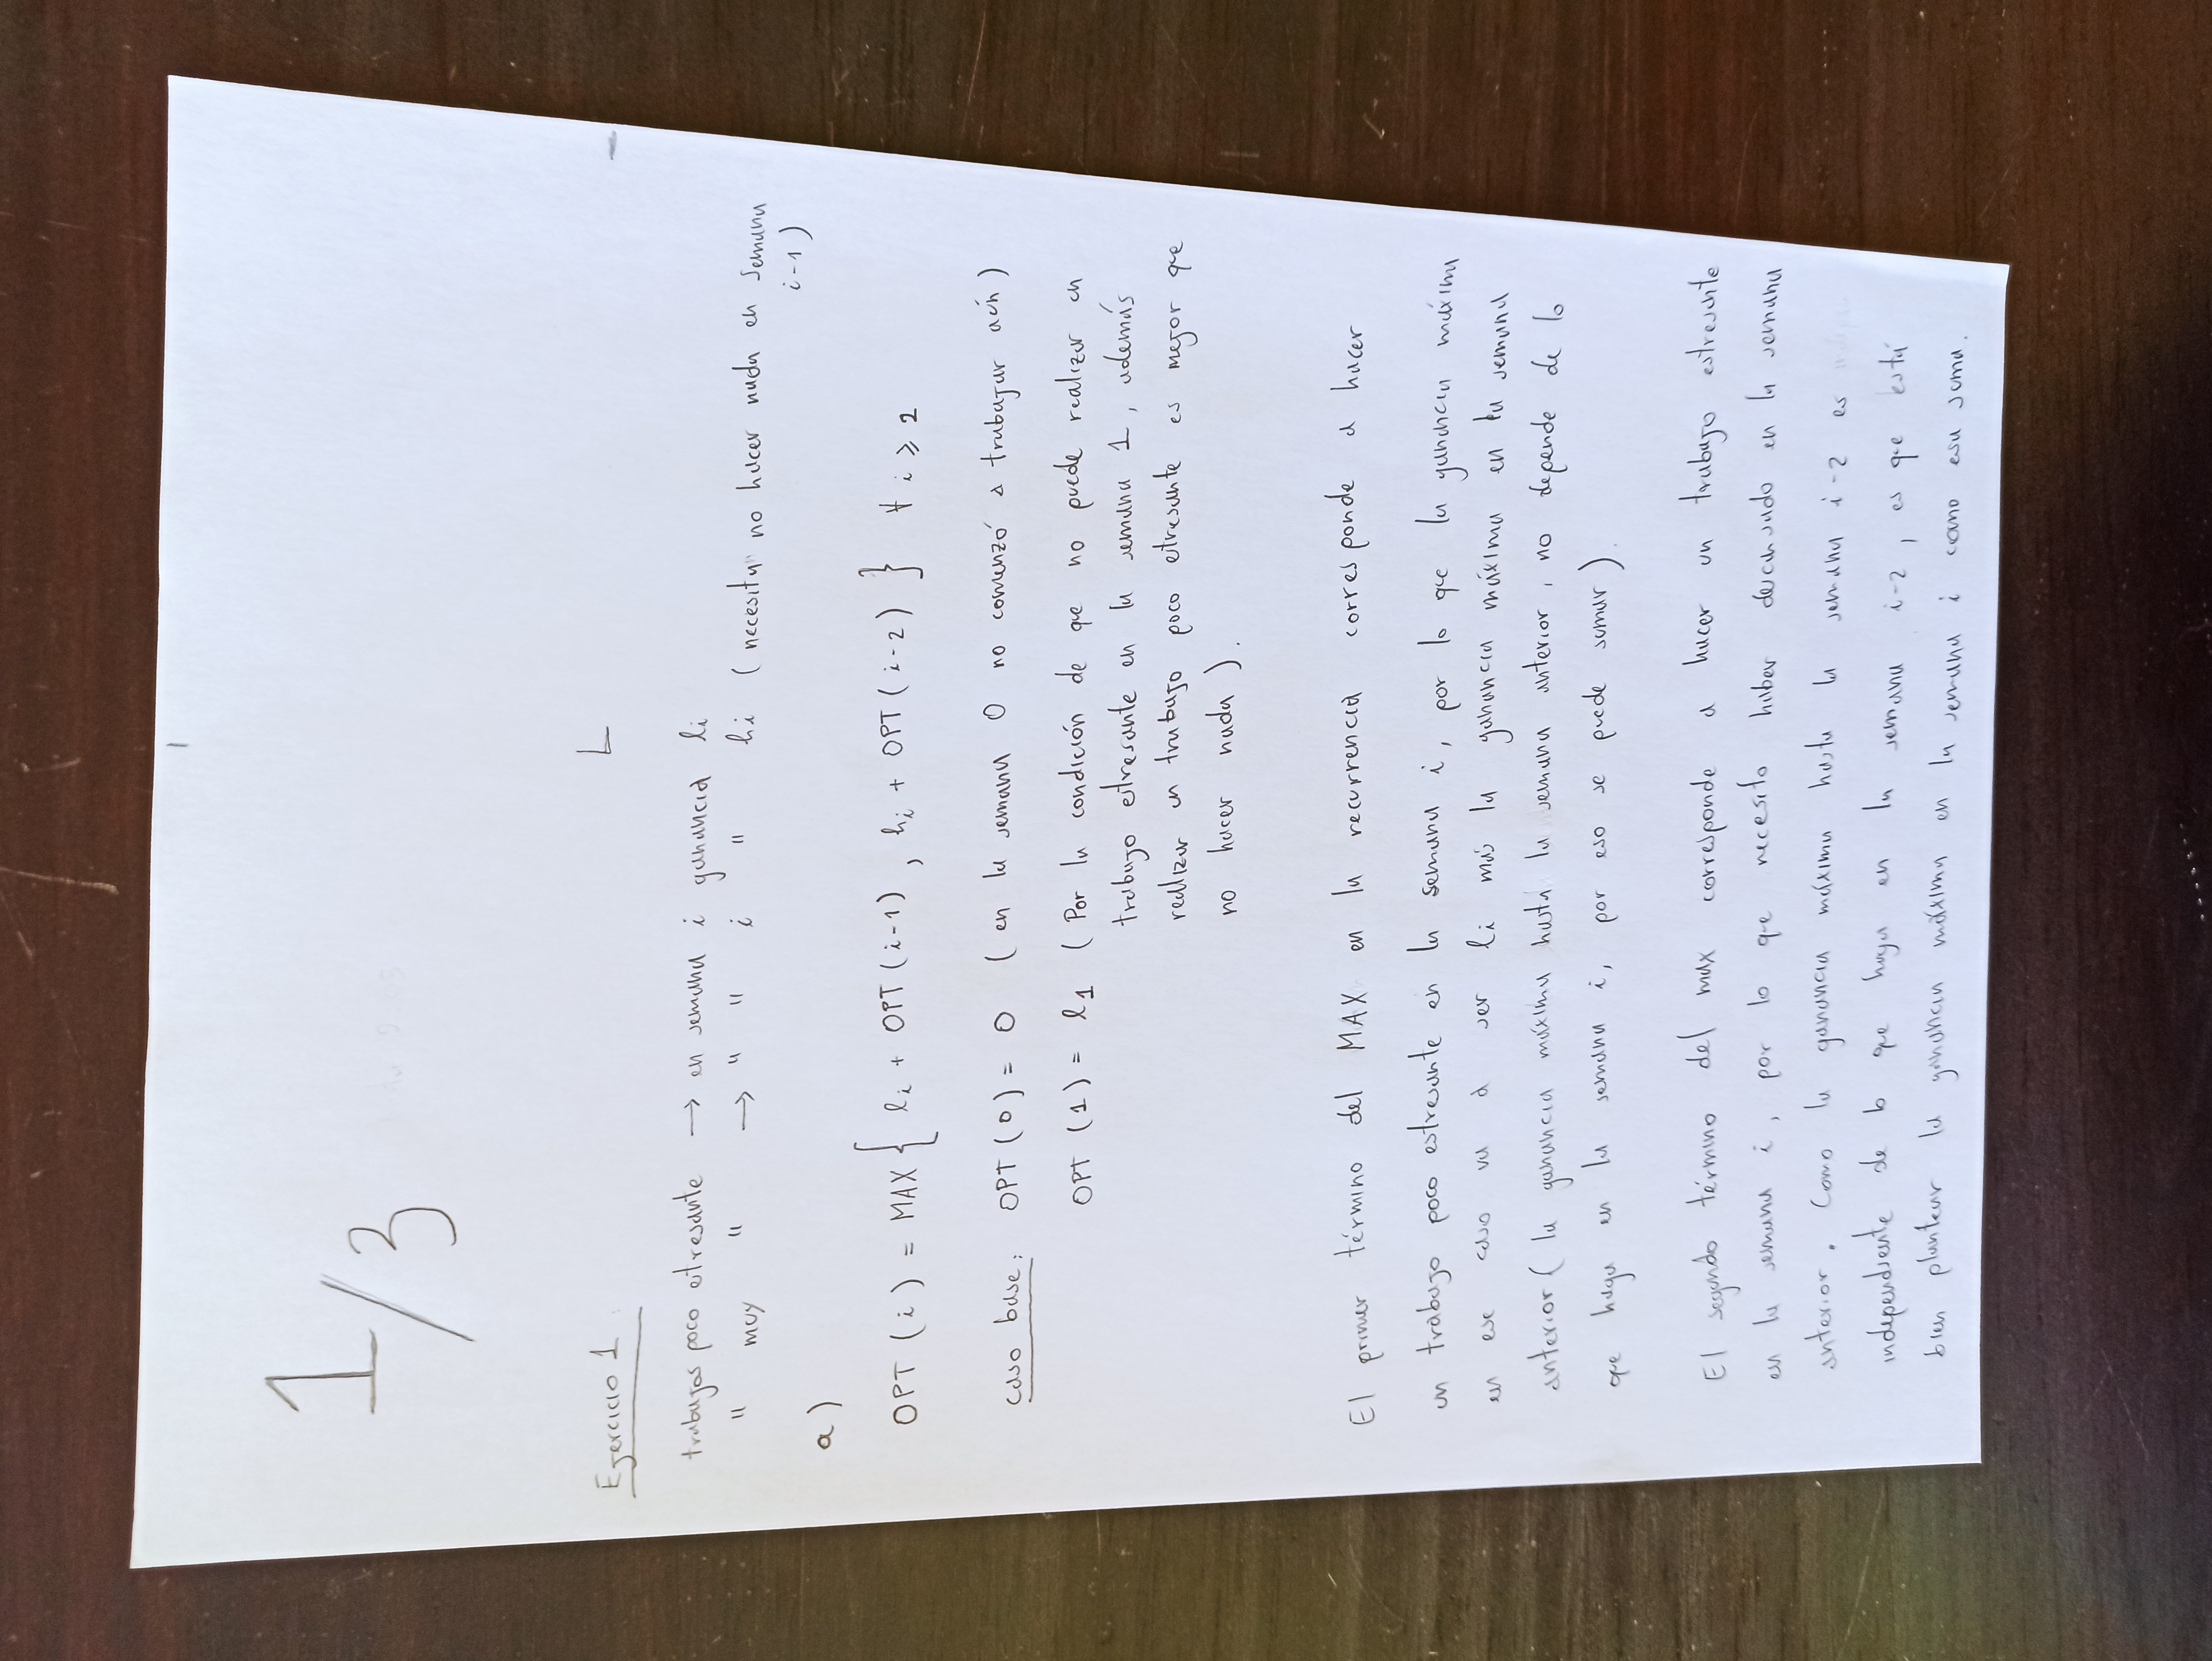 1/3
L
Ejercicio 1:
trabajos poco estresante → en semana i ganancia li
" muy " → " " i " hi (necesita no hacer nada en semana
i-1)
a)
OPT (i) = MAX { li + OPT(i-1) , hi + OPT(i-2) } ∀ i ⩾ 2
caso base: OPT (0) = 0 (en la semana 0 no comenzó a trabajar aún)
OPT (1) = l1 (Por la condición de que no puede realizar un
trabajo estresante en la semana 1, además
realizar un trabajo poco estresante es mejor que
no hacer nada).
El primer término del MAX en la recurrencia corresponde a hacer
un trabajo poco estresante en la semana i, por lo que la ganancia máxima
en ese caso va a ser li más la ganancia máxima en la semana
anterior (la ganancia máxima hasta la semana anterior, no depende de lo
que haga en la semana i, por eso se puede sumar).
El segundo término del max corresponde a hacer un trabajo estresante
en la semana i, por lo que necesito haber descansado en la semana
anterior. Como la ganancia máxima hasta la semana i-2 es
independiente de lo que haga en la semana i-2, es que está
bien plantear la ganancia máxima en la semana i como esa suma.